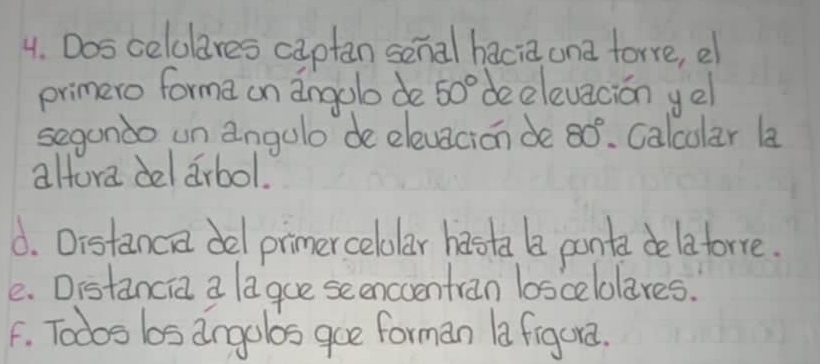 4. Dos celulares captan señal hacia una torre, el
primero forma un ángulo de 50° de elevación y el
segundo un angulo de elevación de 80°. Calcular la
altura del árbol.
d. Distancia del primer celular hasta la punta de la torre.
e. Distancia a la que se encuentran los celulares.
f. Todos los ángulos que forman la figura.